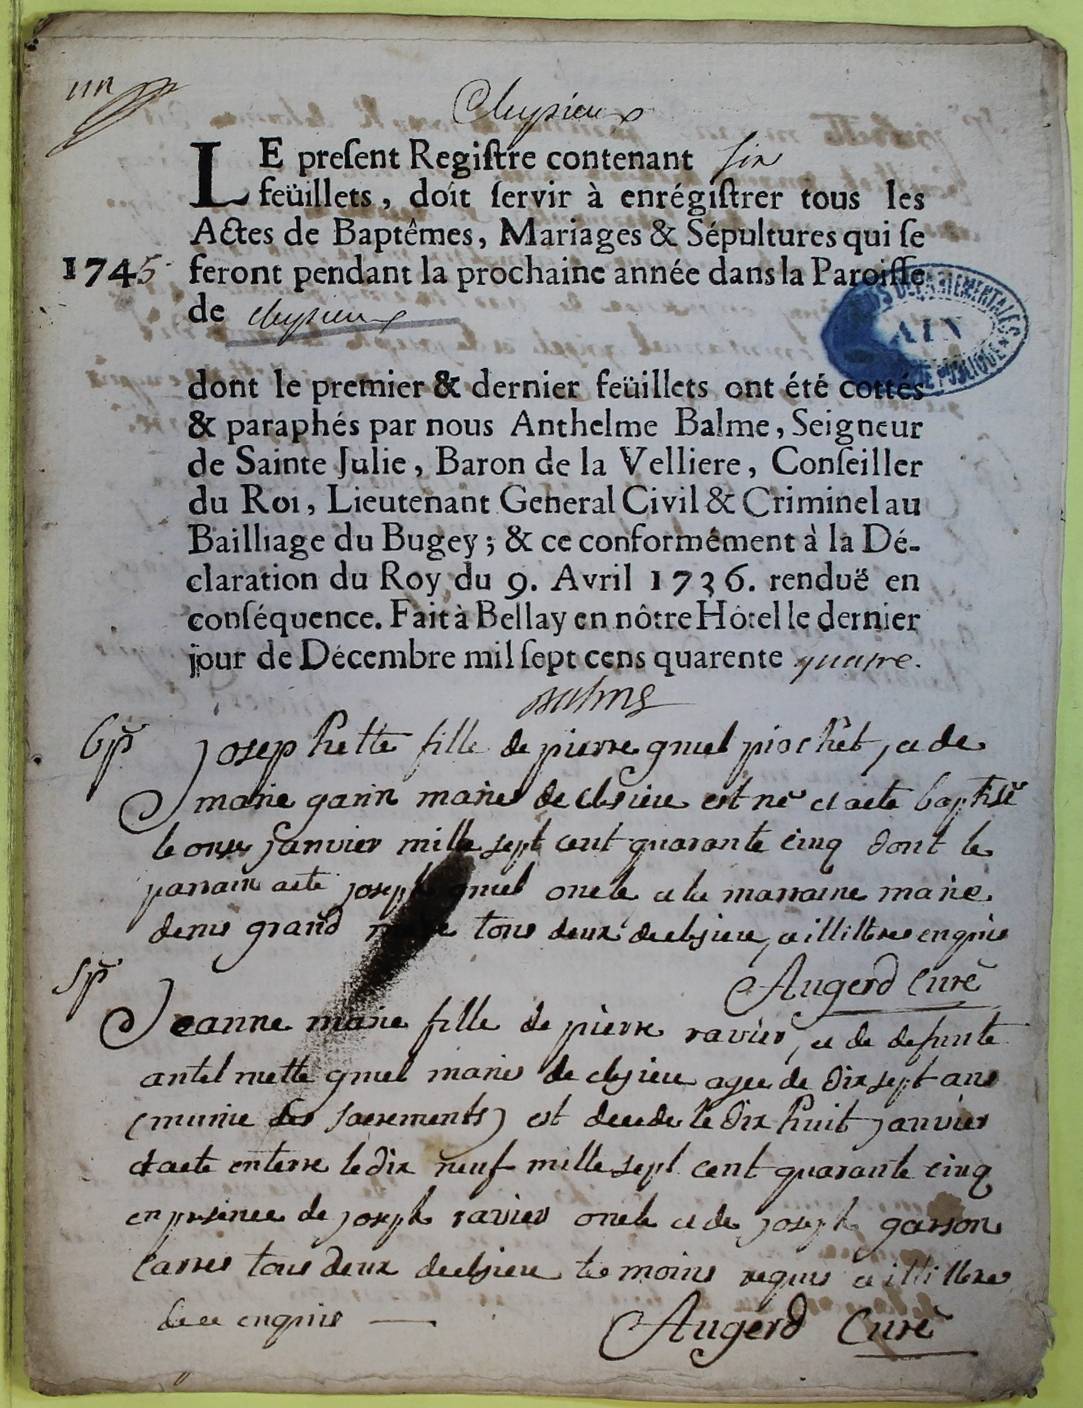 un
Cheysieu
LE preſent Regiſtre contenant six
feüillets, doit ſervir à enrégiſtrer tous les
Actes de Baptêmes, Mariages & Sépultures qui ſe
1745 feront pendant la prochaine année dans la Paroiſſe
de cheysieu
ARCHIVES DEPARTEMENTALES
AIN
PUBLIQUE
dont le premier & dernier feüillets ont été cottés
& paraphés par nous Anthelme Balme, Seigneur
de Sainte Julie, Baron de la Velliere, Conſeiller
du Roi, Lieutenant General Civil & Criminel au
Bailliage du Bugey; & ce conformément à la Dé-
claration du Roy du 9. Avril 1736. renduë en
conſéquence. Fait à Bellay en nôtre Hôtel le dernier
jour de Décembre mil ſept cens quarente quatre.
Balme
bp Josephette fille de pierre gruel piochet, et de
marie garin maries de chsieu est né et aete baptisé
le onze Janvier mille sept cent quarante cinq dont le
parrain aeté joseph gruel oncle et la marraine marie
denis grand mere tous deux de chsieu, et illitres enquis
Augerd Curé
sp Jeanne marie fille de pierre ravier, et de defunte
antelmette gruel maries de chsieu agee de dix sept ans
(munie des sacrements) est decede le dix huit janvier
et aete enterre le dix neuf mille sept cent quarante cinq
en presence de joseph ravier oncle et de joseph garson
carres tous deux de chsieu temoins requis et illitres
de ce enquis
Augerd Curé